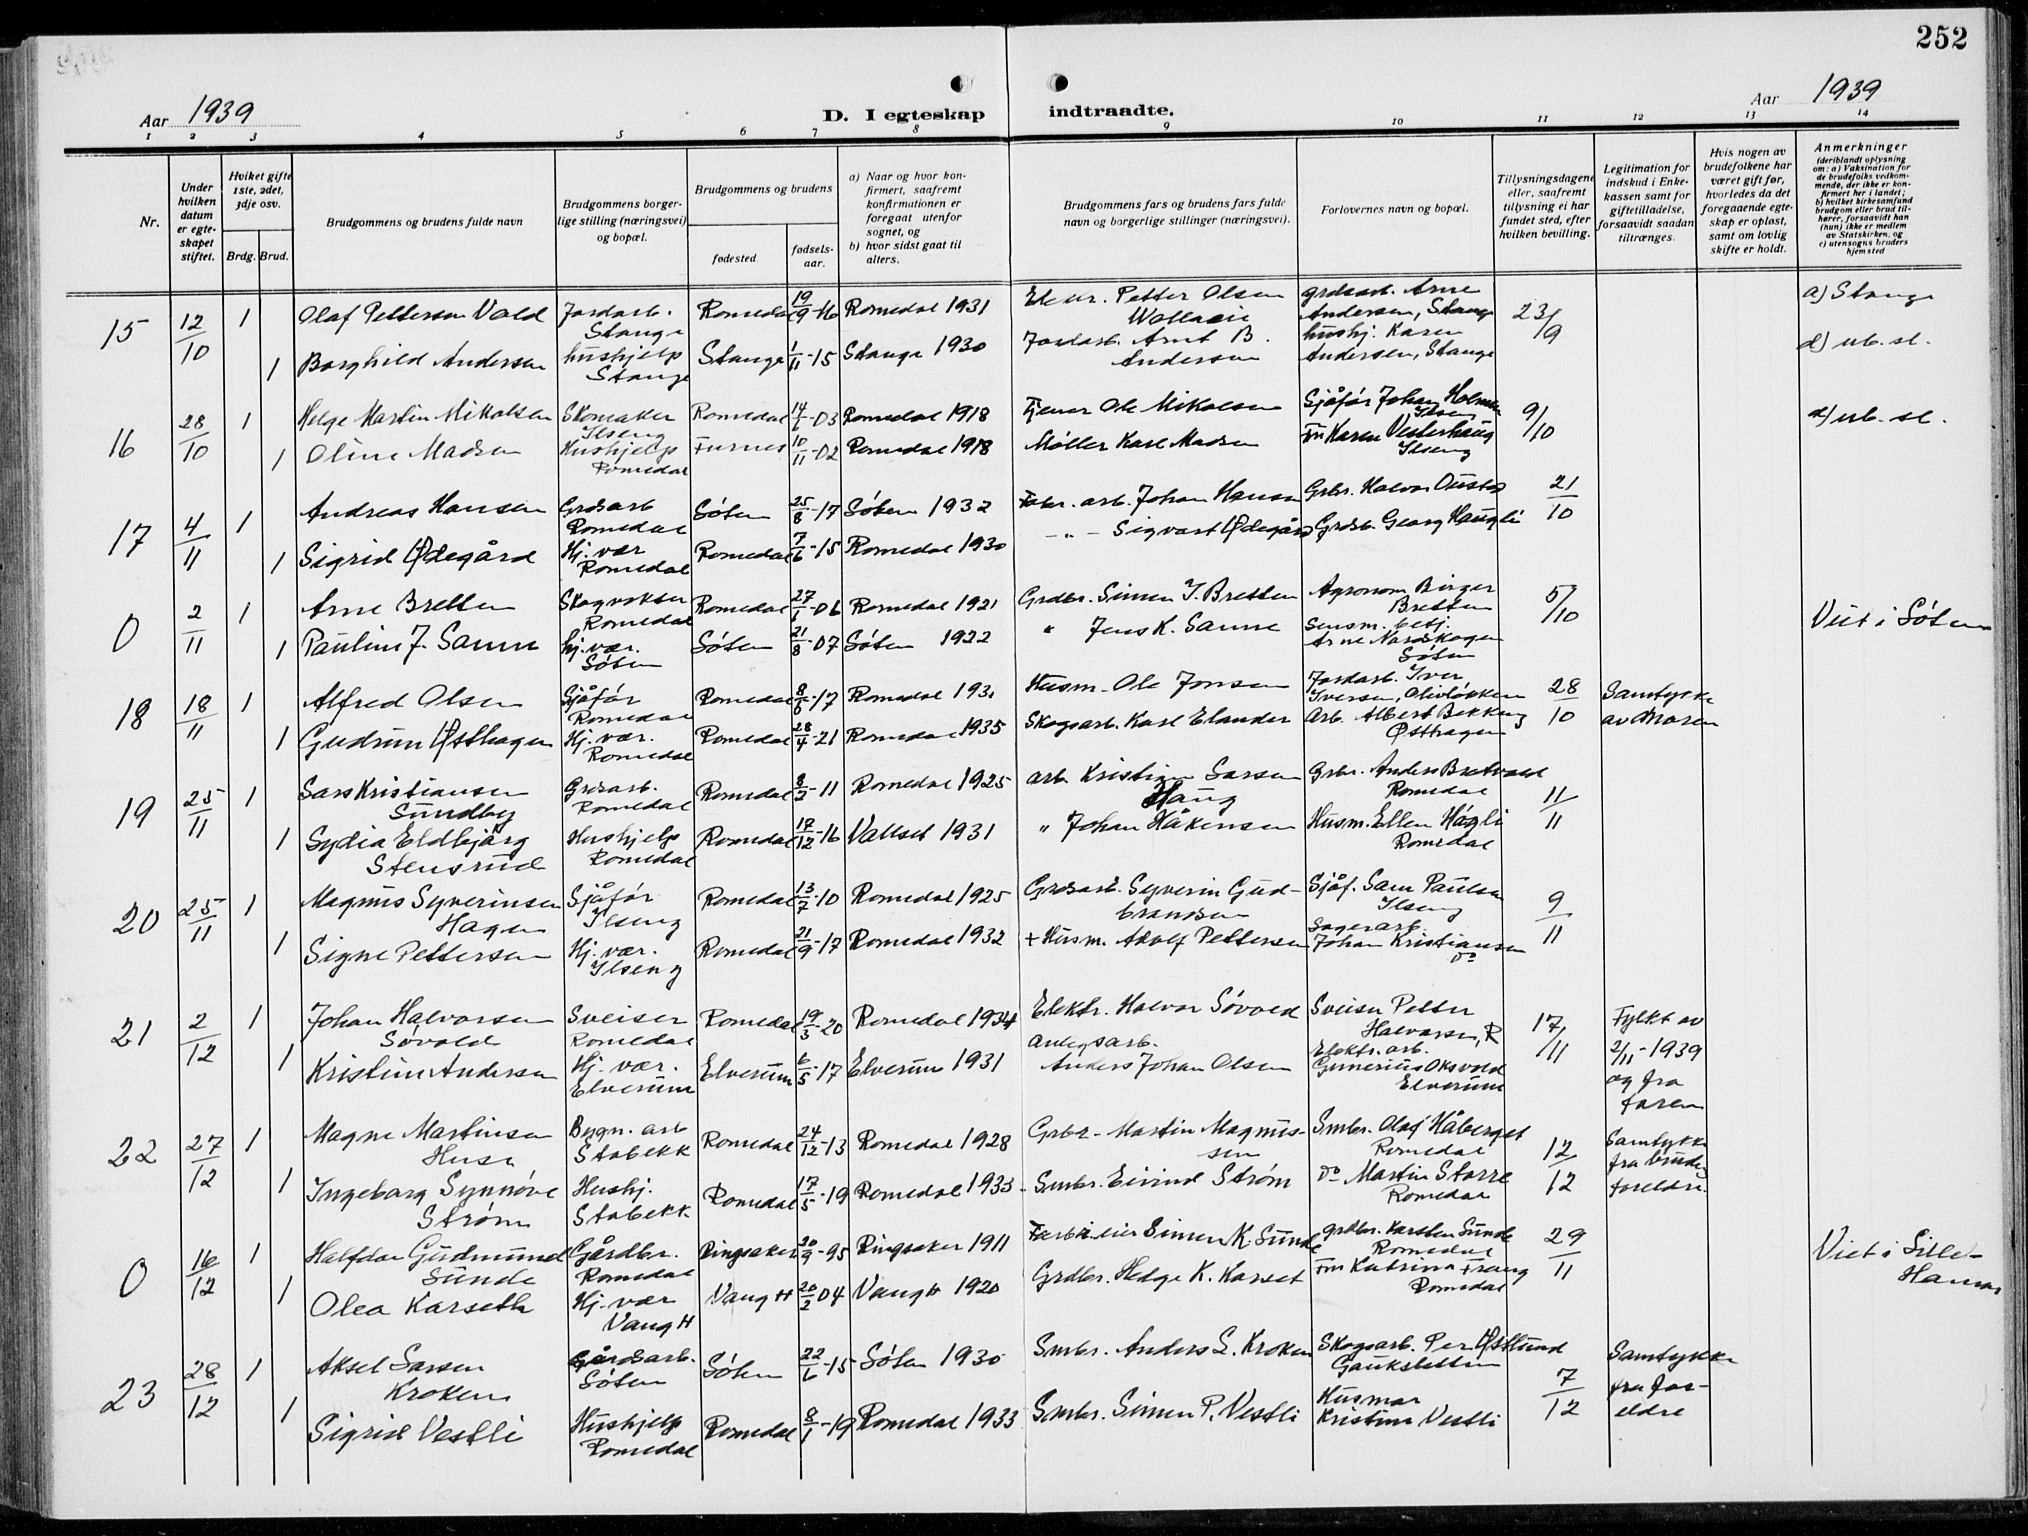 252
Aar 1939
D. I egteskap indtraadte.
Aar 1939
1 2 3 4 5 6 7 8 9 10 11 12 13 14
Nr.
Under hvilken datum er egteskapet stiftet.
Hvilket gifte 1ste, 2det, 3dje osv.
Brdg. Brud.
Brudgommens og brudens fulde navn
Brudgommens borgerlige stilling (næringsvei) og bopæl.
Brudgommens og brudens
fødested. fødselsaar.
a) Naar og hvor konfirmert, saafremt konfirmationen er foregaat utenfor sognet, og
b) hvor sidst gaat til alters.
Brudgommens fars og brudens fars fulde navn og borgerlige stillinger (næringsvei).
Forlovernes navn og bopæl.
Tillysningsdagene eller, saafremt tillysning ei har fundet sted, efter hvilken bevilling.
Legitimation for indskud i Enkekassen samt for giftetilladelse, forsaavidt saadan tiltrænges.
Hvis nogen av brudefolkene har været gift før, hvorledes da det foregaaende egteskap er opløst, samt om lovlig skifte er holdt.
Anmerkninger
(deriblandt oplysning om: a) Vaksination for de brudefolks vedkommende, der ikke er konfirmert her i landet; b) hvilket kirkesamfund brudgom eller brud tilhører, forsaavidt han (hun) ikke er medlem av Statskirken, og c) utensogns bruders hjemsted
15 12/10 1 Olaf Pettersen Vold Jordarb. Stange Romedal 19/9-16 Romedal 1931 Petter Olsen grdsarb. Arne Andersen, Stange 23/9 a) Stange
1 Borghild Andersen hushjelp Stange Stange 1/11-15 Stange 1930 Jordarb. Arnt B. Andersen hushj. Karen Andersen, Stange d) ub. sl.
16 28/10 1 Helge Martin Mikalsen Skomaker Ilseng Romedal 14/6-03 Romedal 1918 Ole Mikalsen Sjåfør Johan Holmen Ilseng 9/10 d) ub. sl.
1 Oline Madsen Hushjelp Romedal Furnes 10/11-02 Romedal 1918 Møller Karl Madsen Fru Karen Vesterhaug Ilseng
17 4/11 1 Andreas Hansen Grdsarb Romedal Løten 25/8-17 Løten 1932 Fabr. arb. Johan Hansen Grbr. Halvor Oustad 21/10
1 Sigrid Ødegård Hj. vær Romedal Romedal 7/6-15 Romedal 1930 - " - Sigvart Ødegård Grdbr. Georg Haugli
0 2/11 1 Arne Bretten Skogvokter Romedal Romedal 27/1-06 Romedal 1921 Grdbr. Simen J. Bretten Agronom Birger Bretten 5/10 Viet i Løten
1 Pauline J. Sanne hj. vær. Løten Løten 21/8-07 Løten 1922 " Jens K. Sanne Lensm. betj. Arne Nordskogen Løten
18 18/11 1 Alfred Olsen Sjåfør Romedal Romedal 8/6-17 Romedal 1931 Husm. Ole Jonsen Jordarb. Iver Iversen, 28/10 Samtykke av moren
1 Gudrun Østhagen Hj. vær. Romedal Romedal 28/4-21 Romedal 1935 Skogsarb. Karl Elander Arb. Albert Bekkeng Østhagen
19 25/11 1 Lars Kristiansen Sundby Grdsarb. Romedal Romedal 8/2-11 Romedal 1925 Arb. Kristian Larsen Haug Grbr. Anders Bretvold Romedal 11/11
1 Lydia Eldbjørg Stensrud Hushjelp Romedal Romedal 17/12-16 Vallset 1931 " Johan Håkensen Husm. Ellen Hagli Romedal
20 25/11 1 Magnus Syverinsen Hagen Sjåfør Ilseng Romedal 13/7-10 Romedal 1925 Grdsarb. Syverin Gudbrandsen Sjåf. Sam Paulsen Ilseng 9/11
1 Signe Pettersen Hj. vær. Ilseng Romedal 21/9-17 Romedal 1932 + Husm. Adolf Pettersen Lagerarb. Johan Kristiansen do
21 2/12 1 Johan HalvorsenLøvold Sveiser Romedal Romedal 19/3-20 Romedal 1934 Elektr. Halvor Løvold Sveiser Petter Halvorsen, R 17/11 Fylkt av 2/11-1939 og fra faren
1 Kristine Andersen Hj. vær. Elverum Elverum 6/5-17 Elverum 1931 anlegsarb. Anders Johan Olsen Elektr. arb. Gunerius Oksvold Elverum
22 27/12 1 Magne Martinsen Huse Bygn. arb Stabekk Romedal 24/12-13 Romedal 1928 Grbr. Martin Magnussen Smbr. Olaf Håberget Romedal 12/12 Samtykke fra brudes foreldre.
1 Ingeborg Synnøve Strøm Hushj. Stabekk Romedal 17/5-19 Romedal 1933 Smbr. Eivind Strøm do Martin Storre Romedal
0 16/12 1 Halfdan Gudmund Sunde Gårdbr. Romedal Ringsaker 20/9-95 Ringsaker 1911 Simen K. Sunde grdbr. Karsten Sunde Romedal 29/11 Viet i Lillehamar
1 Olea Karseth Hj. vær Vang H Vang H 20/2 04 Vang H 1920 Grdbr. Helge K. Karset Fru Katrina Frang Romedal
23 28/12 1 Aksel Larsen Kroken Gårdsarb. Løten Løten 22/6-15 Løten 1930 Smbr. Anders L. Kroken Skogsarb. Per Østlund Gaukstetten 7/12 Samtykke fra foreldre
1 Sigrid Vestli Hushjelp Romedal Romedal 8/1-19 Romedal 1933 Smbr. Simen P. Vestli Husmor Kristine Vestli